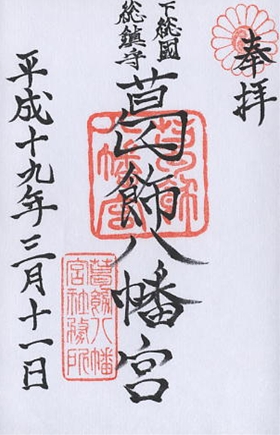 奉拝
下総國
総鎮守
葛飾八幡宮
葛飾八幡宮
葛飾八幡
宮社務所
平成十九年三月十一日